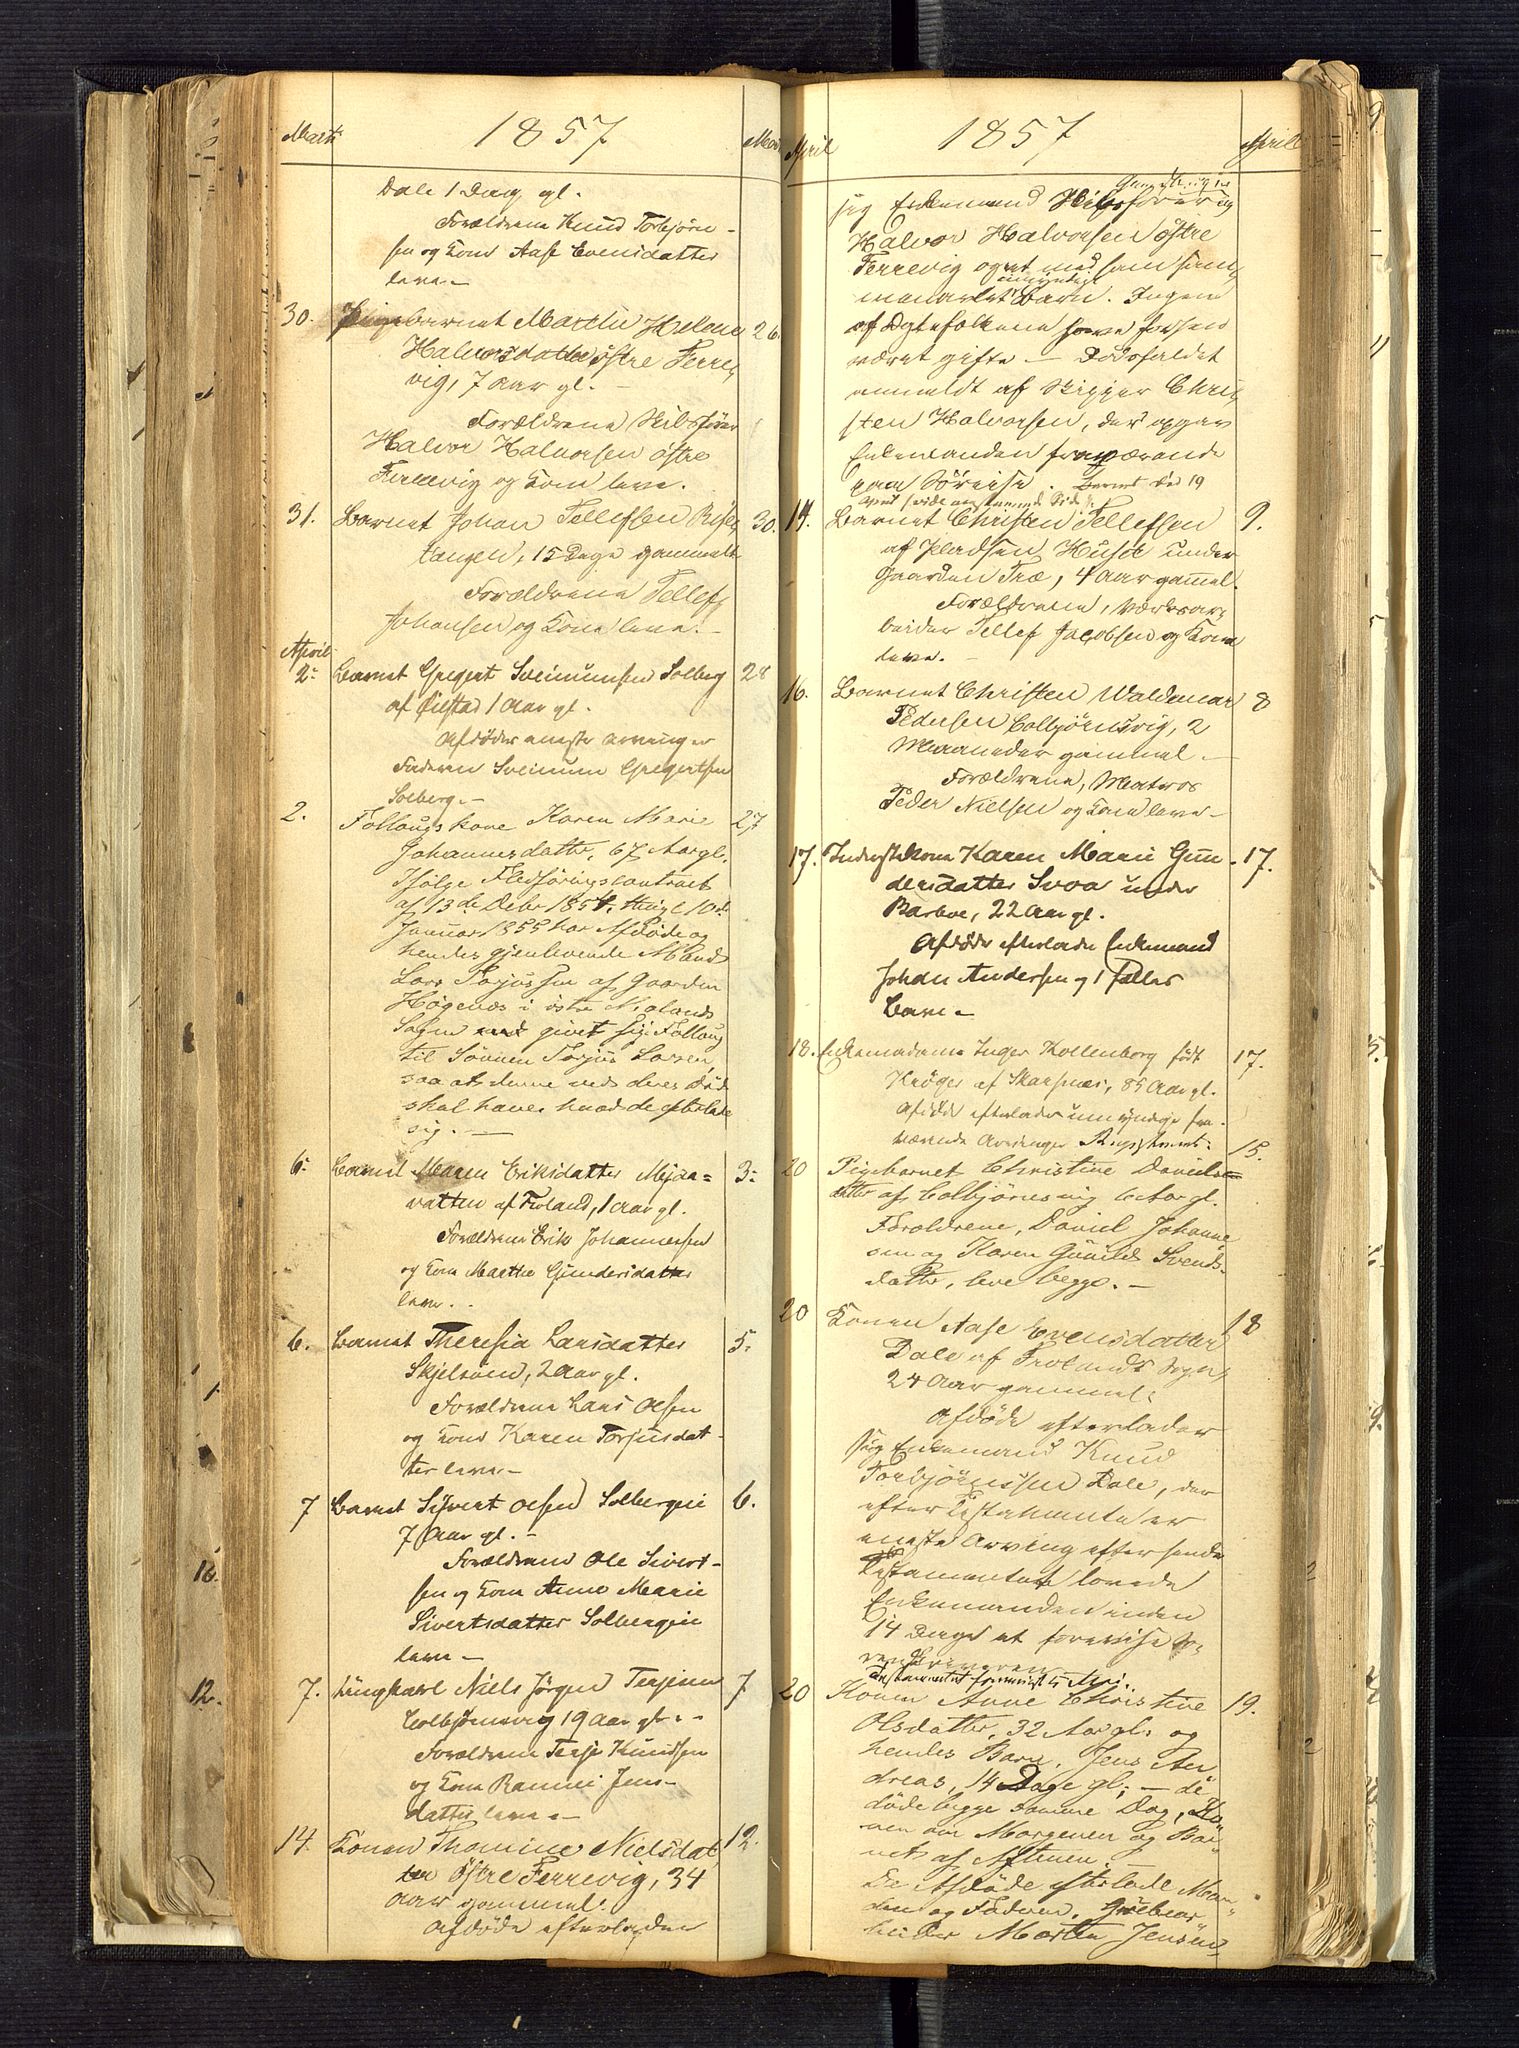 Marts 1857 Marts
Dale 1 Dag gl.
Forældrene Knud Torbjörn-
sen og Kone Aase Evensdatter
leve.-
30. Pigebarnet Marthe Helene 26.
Halvorsdatter östre Ferre-
vig, 7 Aar gl. -
Forældrene Skibsförer
Halvor Halvorsen östre
Ferrevig og Kone leve.
31. Barnet Johan Tellefsen Röse- 30.
tangen, 15 Dage gammelt
Forældrene Tellef
Johansen og Kone leve.-
April
2. Barnet Gregert Sveinumsen Solberg 28
af 1 Aar gl.
Afdödes eneste Arvinger
Faderen Sveinum Gregertsen
Solberg.-
2. Follaugskone Karen Marie 27
Johannesdatter, 67 Aar gl.
Ifölge Fledföringscontract
af 13de Decbr 1854, 10de
Januar 1855 har Afdöde og
hendes gjenlevende Mand
Lars Torjussen af Gaarden
Högenes i östre Molands
Sogn givet sig i Follaug
til Sönnen Torjus Larsen,
saa at denne ved deres Död
skal have hvad de efterlade
sig. -
6. Barnet Maren Eriksdatter Mjda= 3.
vatten af Froland, 1 Aar gl.
Forældrene Erik Johannessen
og Kone Marthe Gundersdatter
leve..
6. Barnet Theresia Larsdatter 5.
Skjelsöen, 2 Aar gl.
Forældrene Lars Olsen
og Kone Karen Torjusdat-
ter leve.-
7 Barnet Sivert Olsen Solbergeie 6.
7 Aar gl.-
Forældrene Ole Sivert-
sen og Kone Anne Marie
Sivertsdatter Solbergeie
leve -
7. Ungkarl Niels Jörgen Terjesen 7
Colbjörnsvig 19 Aar gl.-
Forældrene Terje Knudsen
og Kone Jens-
datter leve.-
14. Konen Thomine Nielsdat- 12.
ter Östre Ferrevig, 34
Aar gammel.
Afdöde efterlader
April 1857 April
sig Enkemand Skibsförer
Halvor Halvorsen östre
Ferrevig og et med ham sam-
menavlet umyndigt Barn. Ingen
af Ægtefolkene have forhen
været gifte - Dödsfaldet
anmeldt af Skipper Chri-
sten Halvorsen, der opgav
Enkemanden fraværende
paa Söreise. Barnet död 19
April
14. Barnet Christen Tellefsen 9.
af Pladsen Huset under
Gaarden Træ, 4 Aar gammel.
Forældrene, Værksar-
beider Tellef Jacobsen og Kone
leve.-
16. Barnet Christen Waldemar 8
Pedersen Colbjörnsvig, 2
Maaneder gammel.-
Forældrene, Matros
Peder Nielsen og Kone leve-
17. Inderstekone Karen Marie Gun- 17.
dersdatter Svoa under
Barboe, 22 Aar gl.
Afdöde efterlader Enkemand
Johan Andersen og 1 Fælles
Barn.-
18. Enkemadame Inger Kollenborg född 17.
Kröger af Skarpnes, 85 Aar gl.
Afdöde efterlader umyndige fra-
værende Arvinger
20 Pigebarnet Christine Daniels- 15.
datter af Colbjörnsvig 6 Aar gl.
Forældrene, Daniel Johanne-
sen og Karen Gunild Svends-
datter, leve begge.-
20 Konen Aase Evensdatter 18
Dale af Frolands Sogn,
24 Aar gammel.
Afdöde efterlader
sig Enkemand Knud
Torbjörnssen Dale, der
efter Testamente er
eneste Arving efter hende
Testamentet lovede
Enkemanden inden
14 Dage at forevise So-
renskriveren
Testamentet forevist 5 Mai.
20 Konen Anne Christine 19.
Olsdatter, 32 Aar gl. og
hendes Barn, Jens An-
dreas, 14 Dage gl; - de
döde begge samme Dag, Ko-
nen om Morgenen og Bar-
net af Aftenen.-
De Afdöde efterlade Man-
den og Faderen,
Morten Jensen,